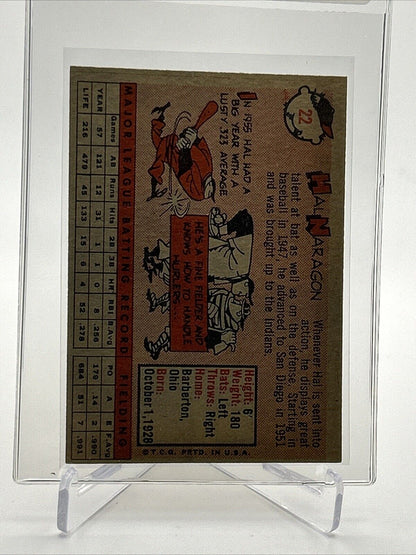 22
HAL NARAGON
Whenever Hal is sent into
action, he displays great
talent at bat as well as on the defense. Starting in
baseball in 1947, he advanced to San Diego in 1951
and was brought up to the Indians.
IN 1955 HAL HAD A
BIG YEAR WITH A
LUSTY .323 AVERAGE
HE'S A FINE FIELDER AND
KNOWS HOW TO HANDLE
HURLERS...
Height: 6'
Weight: 180
Bats: Left
Throws: Right
Home:
Barberton,
Ohio
Born:
October 1, 1928
© T.C.G. PRTD. IN U.S.A.
MAJOR LEAGUE BATTING RECORD FIELDING
Games AB Runs Hits 2B 3B HR RBI B.Avg. PO A E F.Avg.
YEAR 57 121 12 31 1 1 0 8 .256 170 14 2 .990
LIFE 216 479 45 133 15 6 4 52 .278 684 51 7 .991